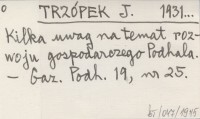 TRZÓPEK J. 1931...
Kilka uwag na temat roz-
woju gospodarczego Podhala.
— Gaz. Podh. 19, nr 25.